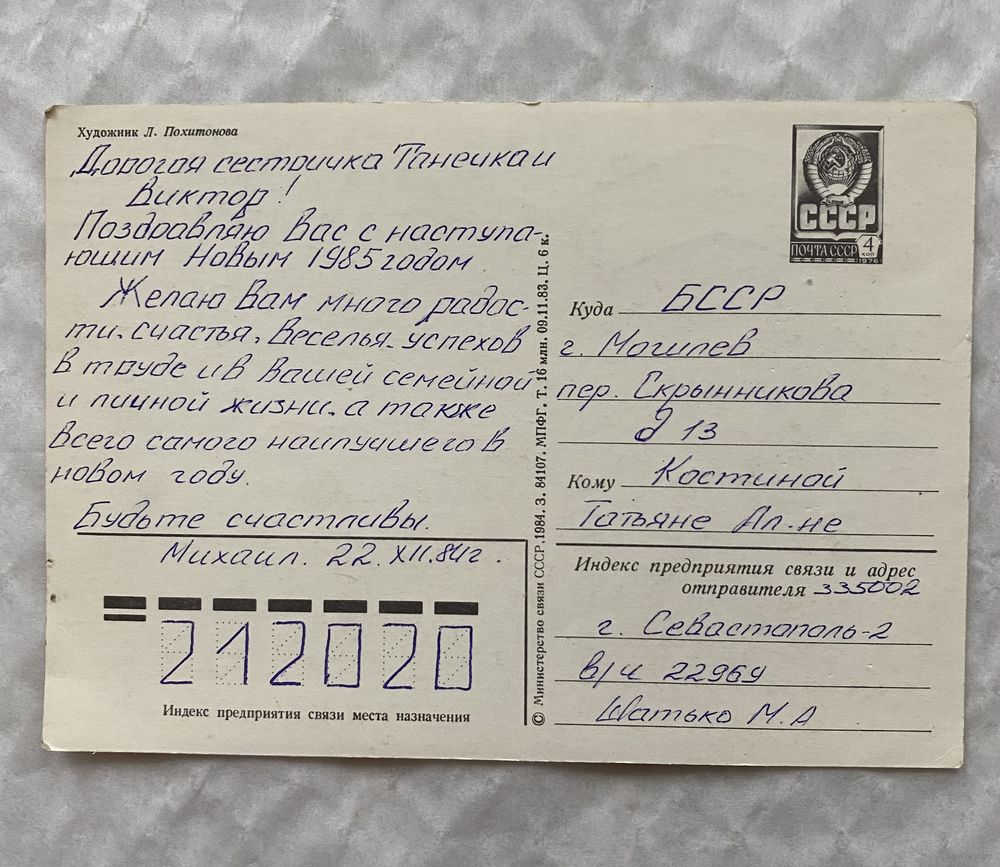 Художник Л. Похитонова
Дорогая сестричка Танечка и
Виктор!
Поздравляю Вас с наступа-
ющим Новым 1985 годом
Желаю Вам много радос-
ти, счастья, веселья, успехов
в труде и в Вашей семейной
и личной жизни, а также
всего самого наилучшего в
новом году.
Будьте счастливы.
Михаил. 22. XII.84г.
212020
Индекс предприятия связи места назначения
© Министерство связи СССР, 1984. З. 84107. МПФГ. Т. 16 млн. 09.11.83. Ц. 6 к.
СССР
ПОЧТА СССР
4
коп
1976
Куда БССР
г. Могилев
пер. Скрынникова
д 13
Кому Костиной
Татьяне Ал-не
Индекс предприятия связи и адрес
отправителя 335002
г. Севастополь-2
в/ч 22969
Шатько М.А